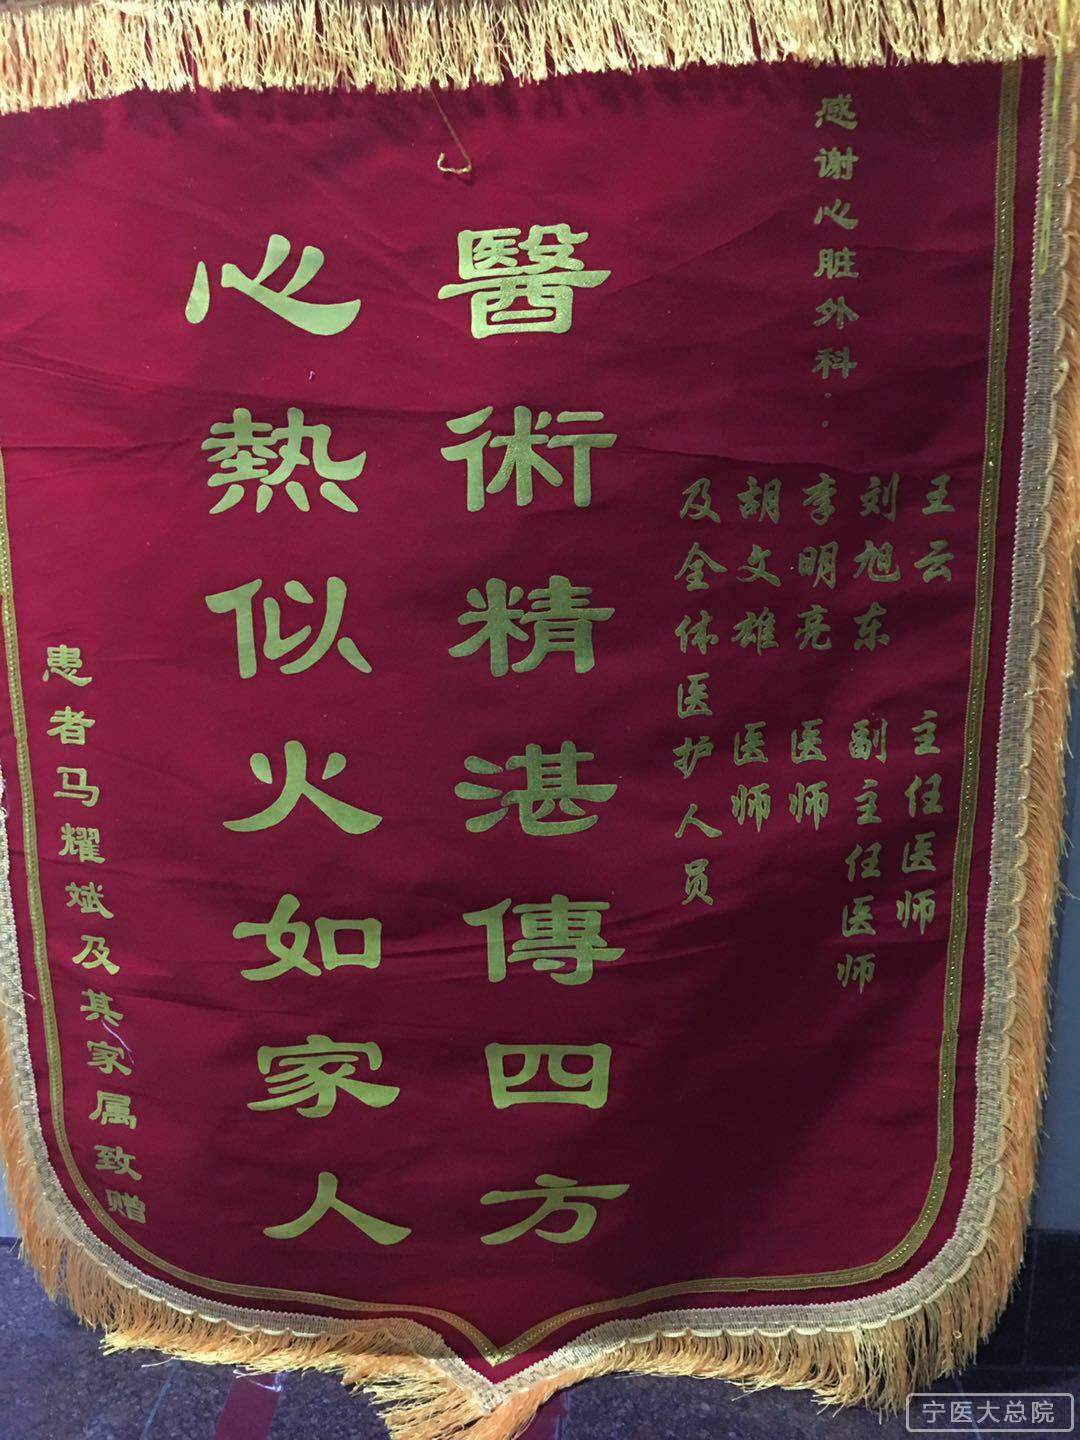 感谢心脏外科：
王云 主任医师
刘旭东 副主任医师
李明亮 医师
胡文雄 医师
及全体医护人员
醫術精湛傳四方
心熱似火如家人
患者马耀斌及其家属致赠
宁医大总院